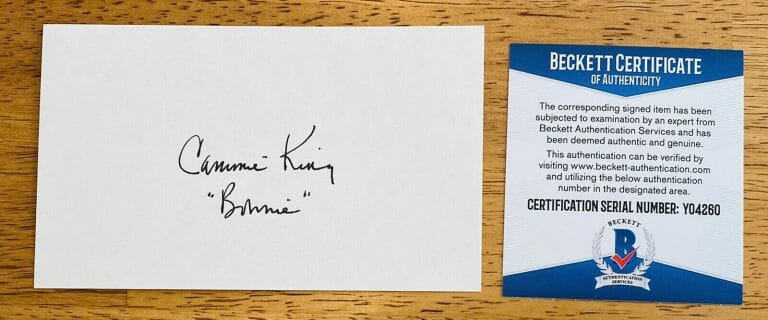 Cammie King
"Bonnie"
BECKETT CERTIFICATE
OF AUTHENTICITY
The corresponding signed item has been
subjected to examination by an expert from
Beckett Authentication Services and has
been deemed authentic and genuine.
This authentication can be verified by
visiting www.beckett-authentication.com
and utilizing the below authentication
number in the designated area.
CERTIFICATION SERIAL NUMBER: Y04260
BECKETT
B
AUTHENTICATION
SERVICES